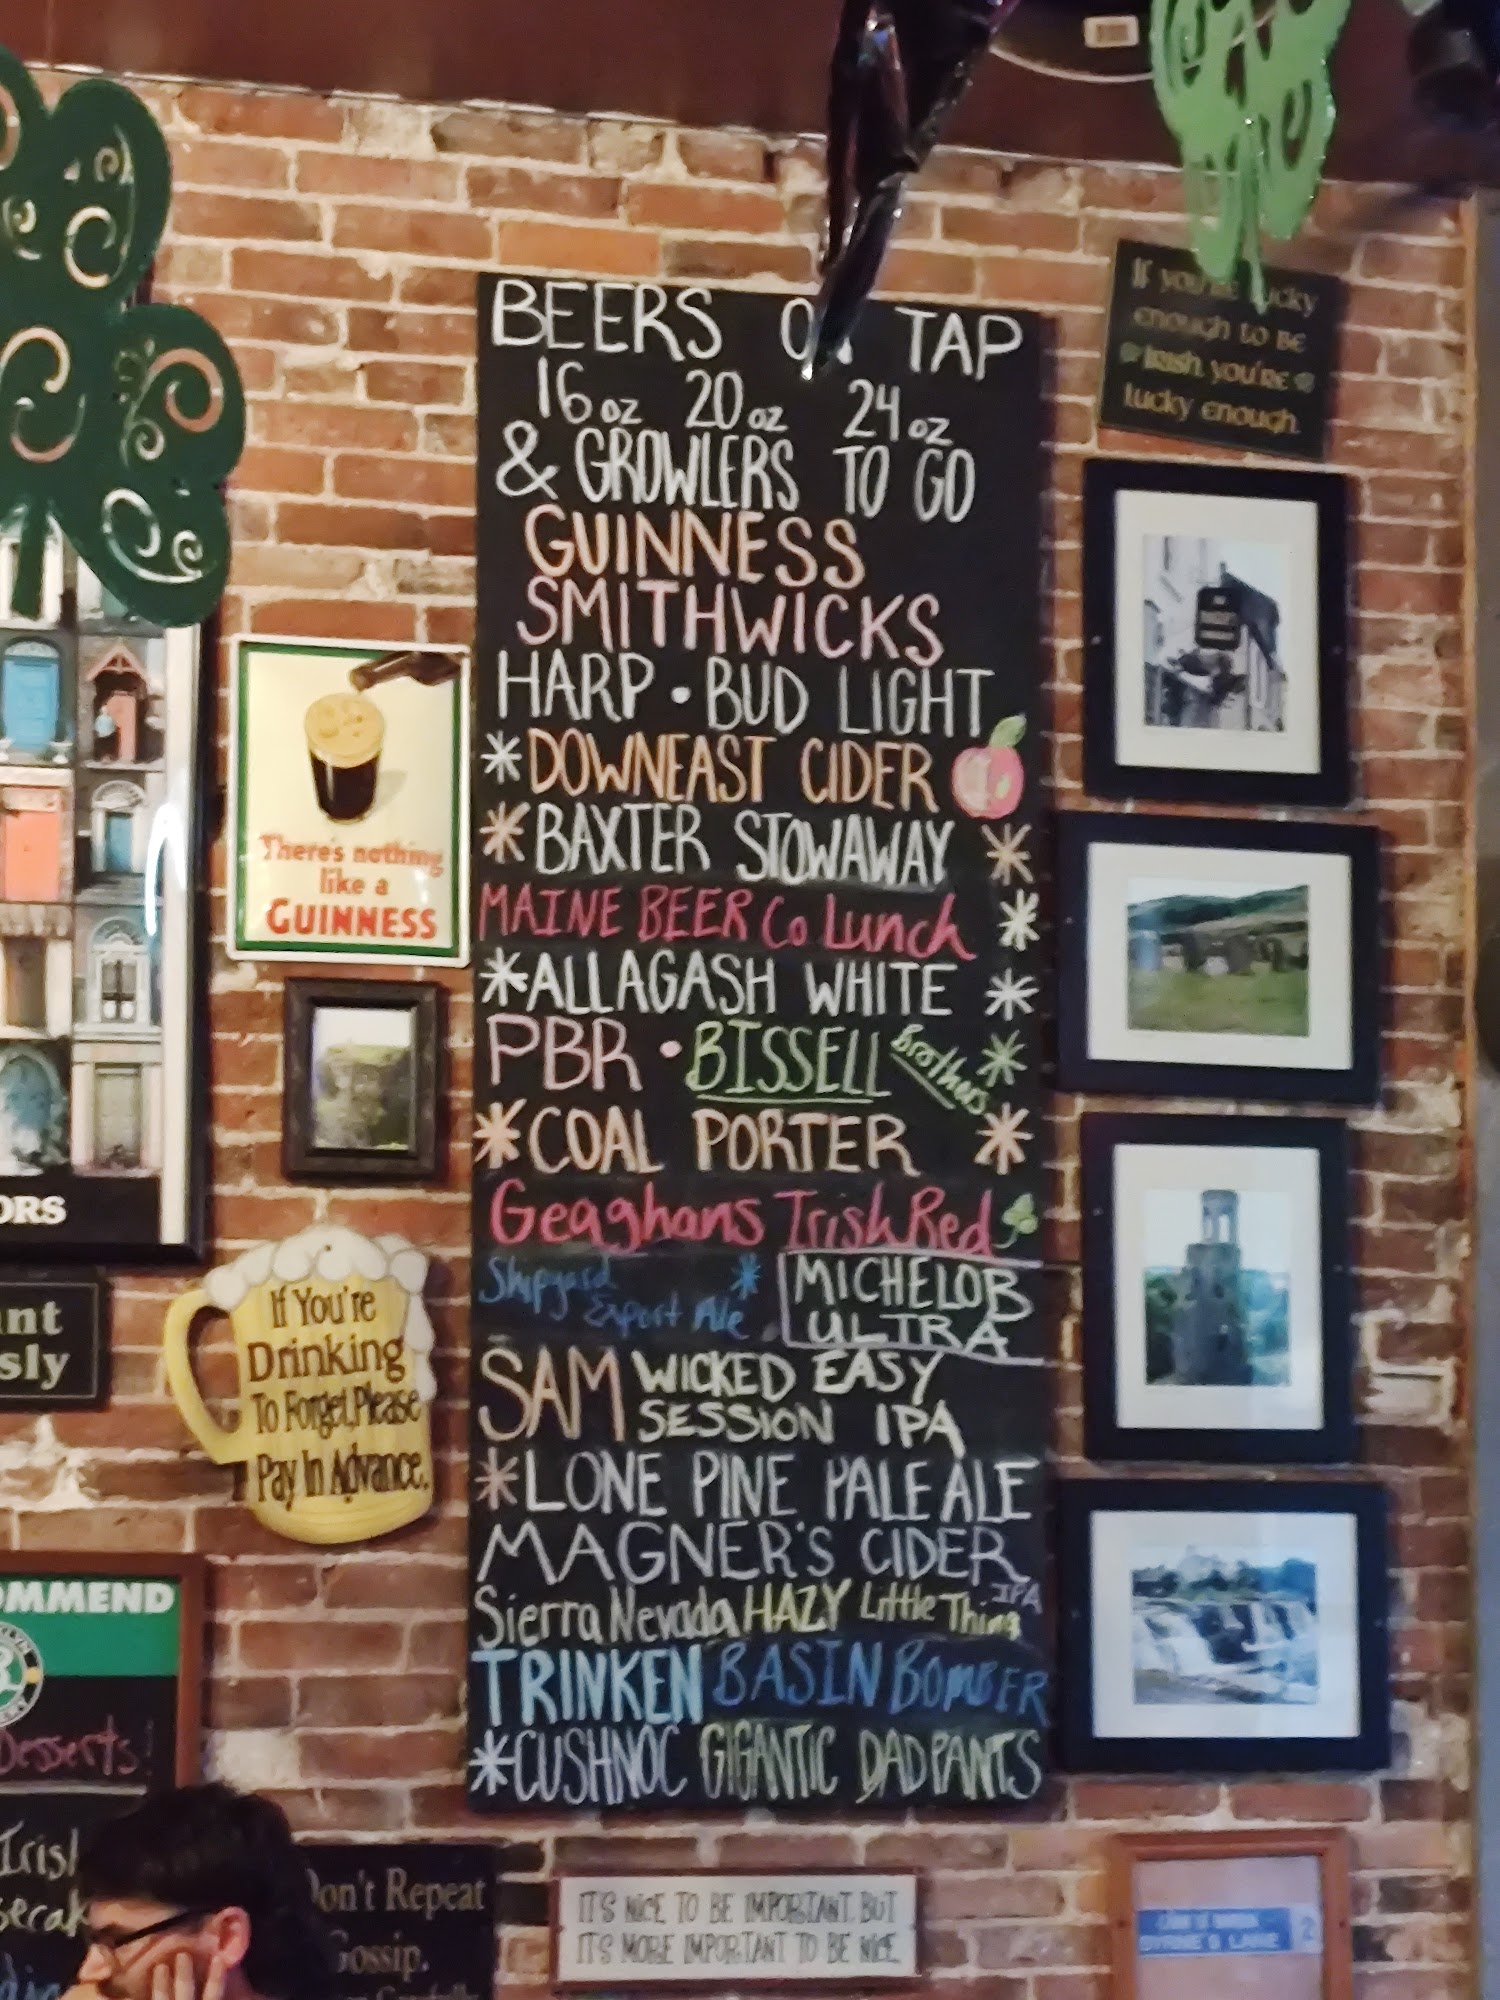 BEERS ON TAP
16oz 20oz 24oz
& GROWLERS TO GO
GUINNESS
SMITHWICKS
HARP • BUD LIGHT
*DOWNEAST CIDER
*BAXTER STOWAWAY *
MAINE BEER Co Lunch *
*ALLAGASH WHITE *
PBR • BISSELL Brothers *
*COAL PORTER *
Geaghans Irish Red
Shipyard Export Ale *
MICHELOB
ULTRA
SAM WICKED EASY
SESSION IPA
*LONE PINE PALE ALE
MAGNER'S CIDER
Sierra Nevada HAZY Little Thing IPA
TRINKEN BASIN BOMBER
*CUSHNOC GIGANTIC DADPANTS
If you're lucky
enough to be
Irish you're
lucky enough.
There's nothing
like a
GUINNESS
ORS
nt
sly
If You're
Drinking
To Forget, Please
Pay In Advance.
OMMEND
Desserts!
Irish
on't Repeat
Gossip.
IT'S NICE TO BE IMPORTANT, BUT
IT'S MORE IMPORTANT TO BE NICE
BYRNE'S LANE 2